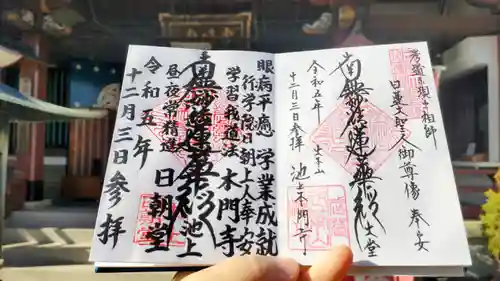 日蓮大聖人御尊像 奉安
南無妙法蓮華経
大堂
令和五年 大本山 池上本門寺
十二月三日参拝
眼病平癒 学業成就
行学院日朝上人奉安
学習我道法 本門寺
南無妙法蓮華経 池上
昼夜常精進 日朝堂
令和五年
十二月三日参拝